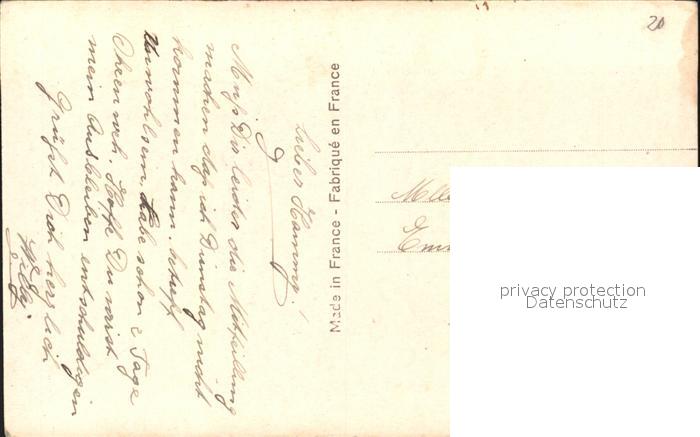 Liebes Hammy!
Muss Dir leider die Mitteilung
machen dass ich Dienstag nicht
kommen kann. betreff
Unwohlsein habe schon 2 Tage
Ohrenweh. Hoffe Du wirst
mein Ausbleiben entschuldigen
Grüsst Dich herzlich
Willy.
Made in France - Fabriqué en France
20
Mlle
privacy protection
Datenschutz